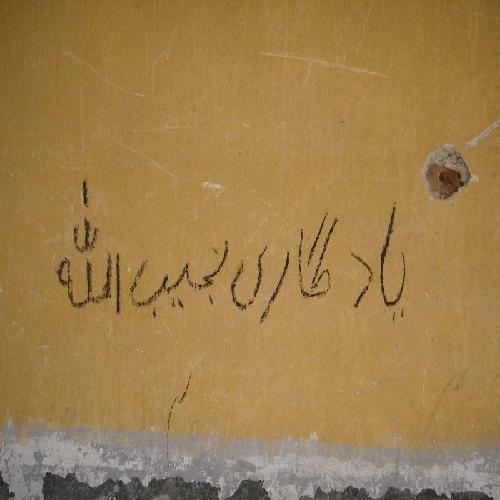 یادگاری نجیب الله